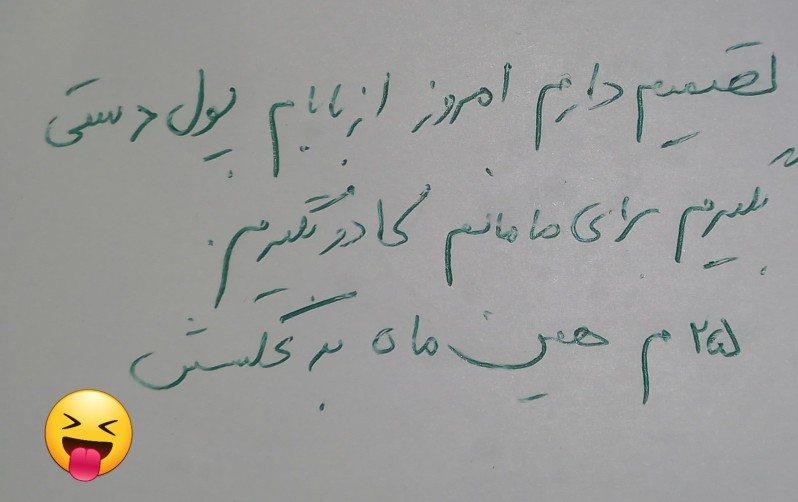 تصمیم دارم امروز از بابام پول دستی
بگیرم برای مامانم کادو بگیرم.
۲۵ م همین ماه